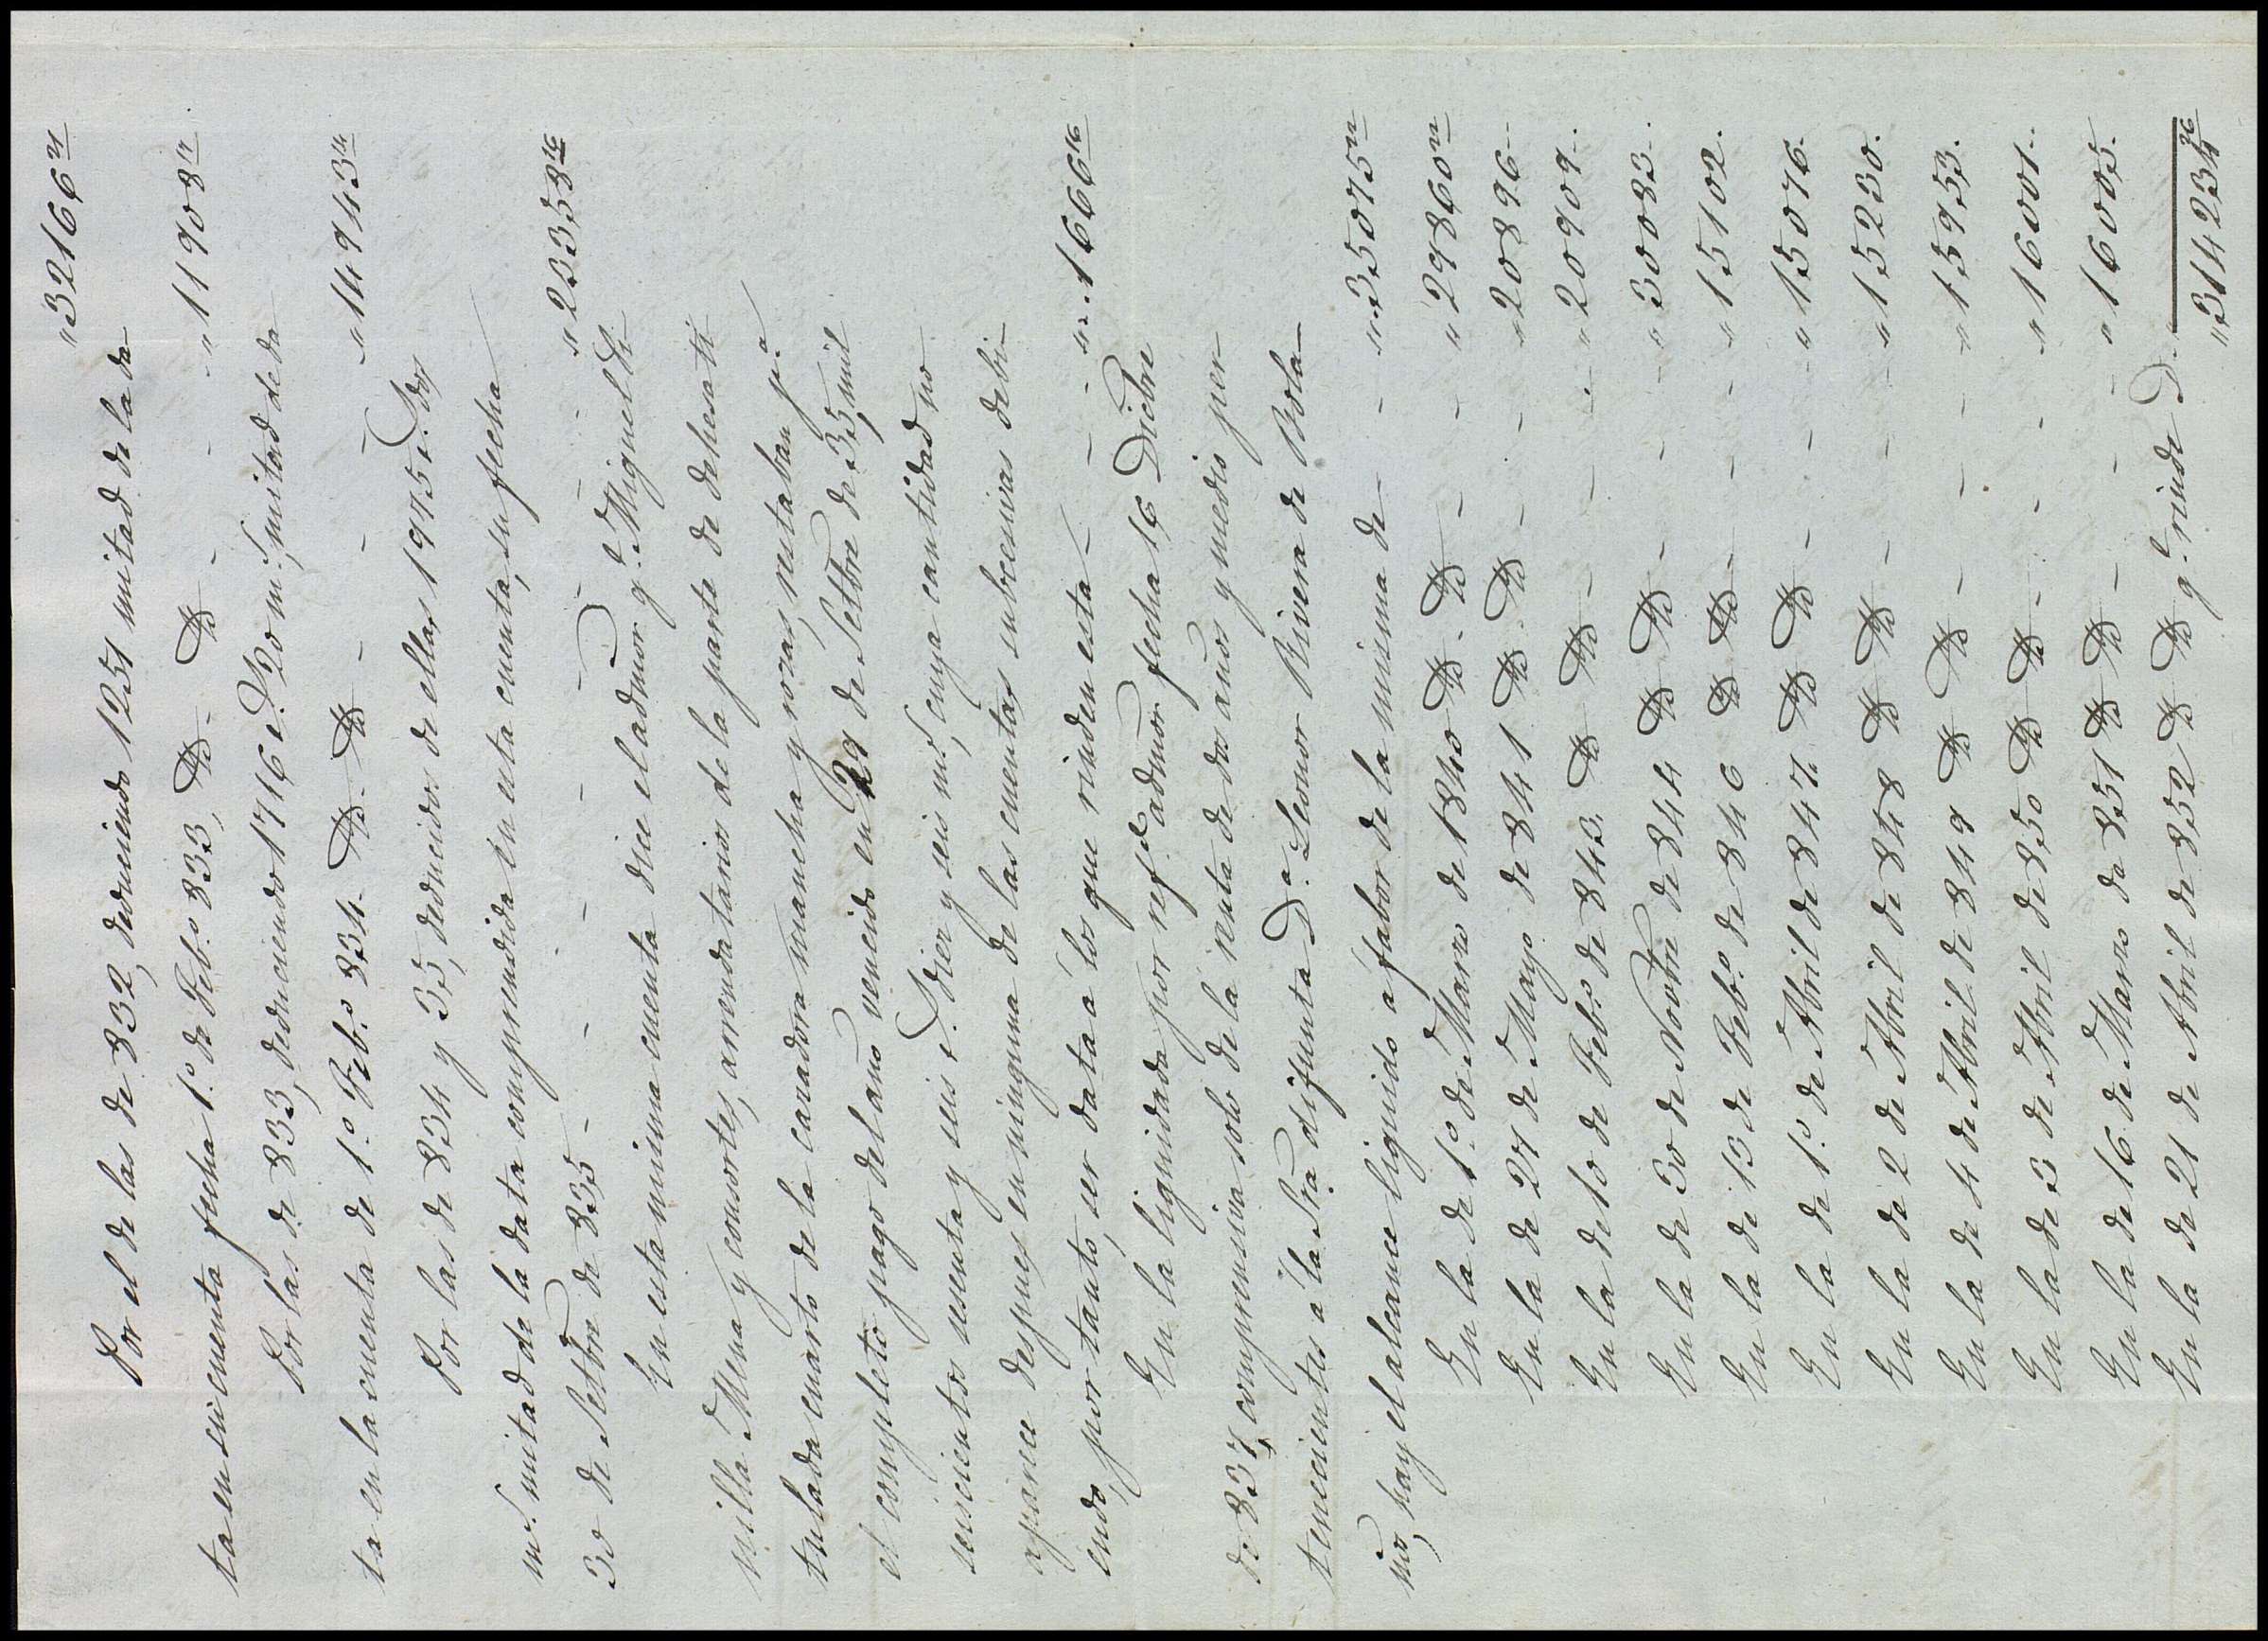 "32166 21
Por el de las de 832, deduciendo 1251 mitad de la da-
ta en su cuenta fecha 1.º de Feb.º 833, Yd. Yd - - - " 11908 17
Por las de 833, deduciendo 1716 r.s 20 m.s mitad de da
ta en la cuenta de 1.º Feb.º 834 - Yd. Yd - - - " 14943 14
Por las de 834 y 35, deducidos de ellas 1975 r.s dos
m.s mitad de la data comprendida en esta cuenta, su fecha
30 de Setbre de 835 - - - - - - - " 23358 16
En esta misma cuenta dice el admor q.e Miguel
milla Mena y consortes, arrendatarios de la parte de dehesa ti-
tulada cuarto de la cazadora mancha y rozas, restaban p.a
el completo pago del año vencido en 29 de Setbre de 35, mil
seiscientos sesenta y seis r.s diez y seis m.s, cuya cantidad no
aparece despues en ninguna de las cuentas subcesivas debi-
endo, por tanto, ser data a los que rinden esta - - - " 1666 16
En la liquidada por ref.do admor fecha 16 Dicbre
de 837, comprensiva solo de la renta de dos años y medio per
tenecientes a la Sra difunta D.a Leonor Rivera de Bola-
ños, hay el alcance liquido a fabor de la misma de - - " 35075 22
En la de 1.º de Marzo de 1840 Yd. Yd - - " 29860 22
En la de 27 de Mayo de 841 Yd. Yd - - " 20896 -
En la de 10 de Feb.º de 843 Yd Yd - - - " 20909.
En la de 30 de Novbre de 844 Yd Yd - - - " 30083.
En la de 13 de Feb.º de 846 Yd Yd - - - " 15102.
En la de 1.º de Abril de 847 Yd Yd - - - " 15076.
En la de 2 de Abril de 848 Yd Yd - - - " 15230.
En la de 4 de Abril de 849 Yd Yd - - - " 15953.
En la de 3 de Abril de 850 Yd Yd - - - " 16001.
En la de 16 de Marzo de 851 Yd Yd - - - " 16005.
En la de 21 de Abril de 852 Yd Yd q.e rinde D.n
"314234 26